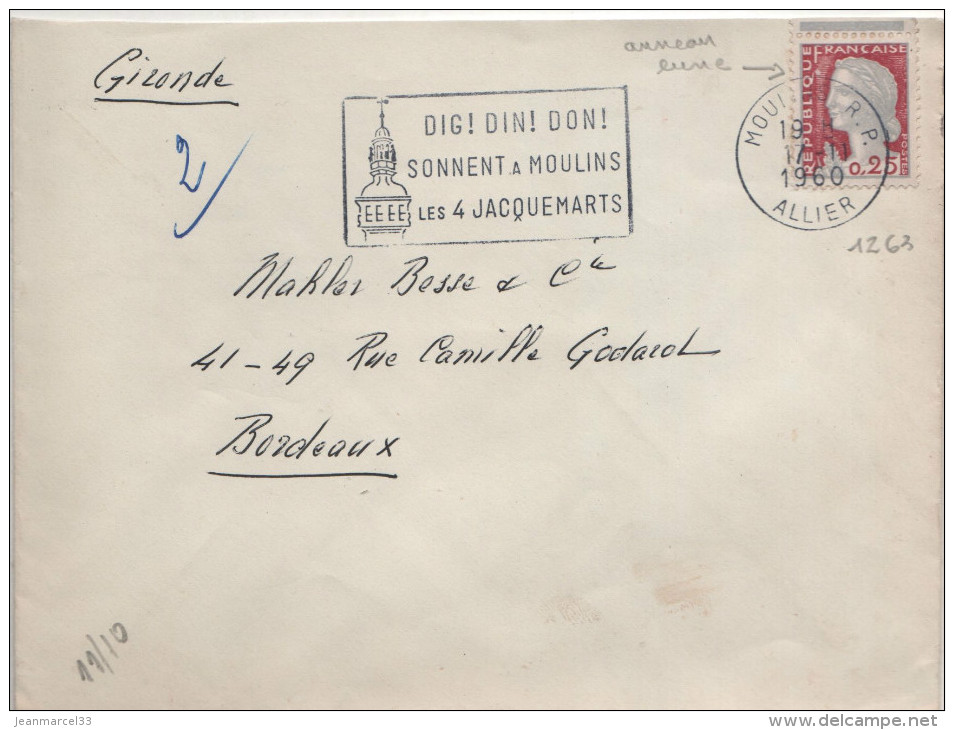 Gironde
2/
anneau
lune
RÉPUBLIQUE FRANÇAISE
POSTES
0,25
MOUL R.P.
19 H
17 - II
1960
ALLIER
1263
DIG! DIN! DON!
SONNENT A MOULINS
LES 4 JACQUEMARTS
Mahler Besse & Cie
41-49 Rue Camille Godard
Bordeaux
11/10
jeanmarcel33
www.delcampe.net